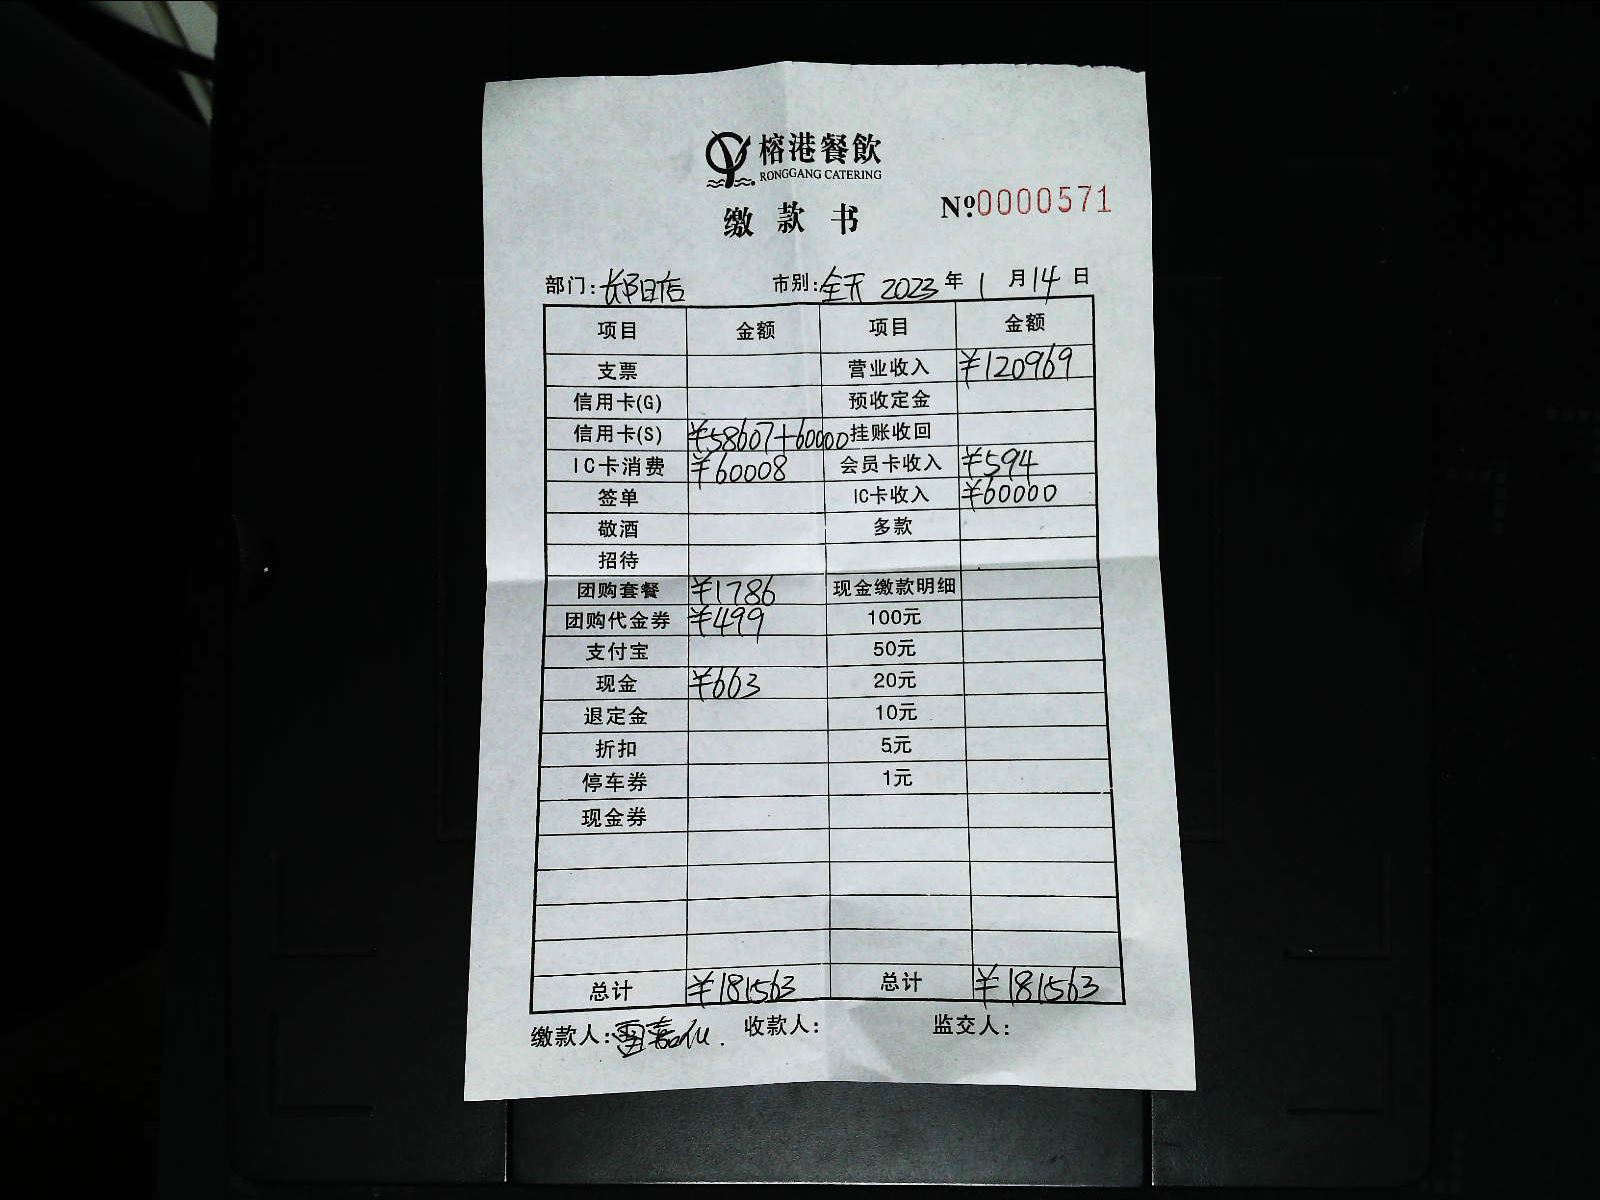 榕港餐飲
RONGGANG CATERING
缴款书
№:0000571
部门: 市别:全天 2023年1月14日
项目 金额 项目 金额
支票 营业收入 ¥120969
信用卡(G) 预收定金
信用卡(S) ¥58607+60000 挂账收回
IC卡消费 ¥60008 会员卡收入 ¥594
签单 IC卡收入 ¥60000
敬酒 多款
招待
团购套餐 ¥1786 现金缴款明细
团购代金券 ¥499 100元
支付宝 50元
现金 ¥663 20元
退定金 10元
折扣 5元
停车券 1元
现金券
总计 ¥181563 总计 ¥181563
缴款人: 收款人: 监交人: